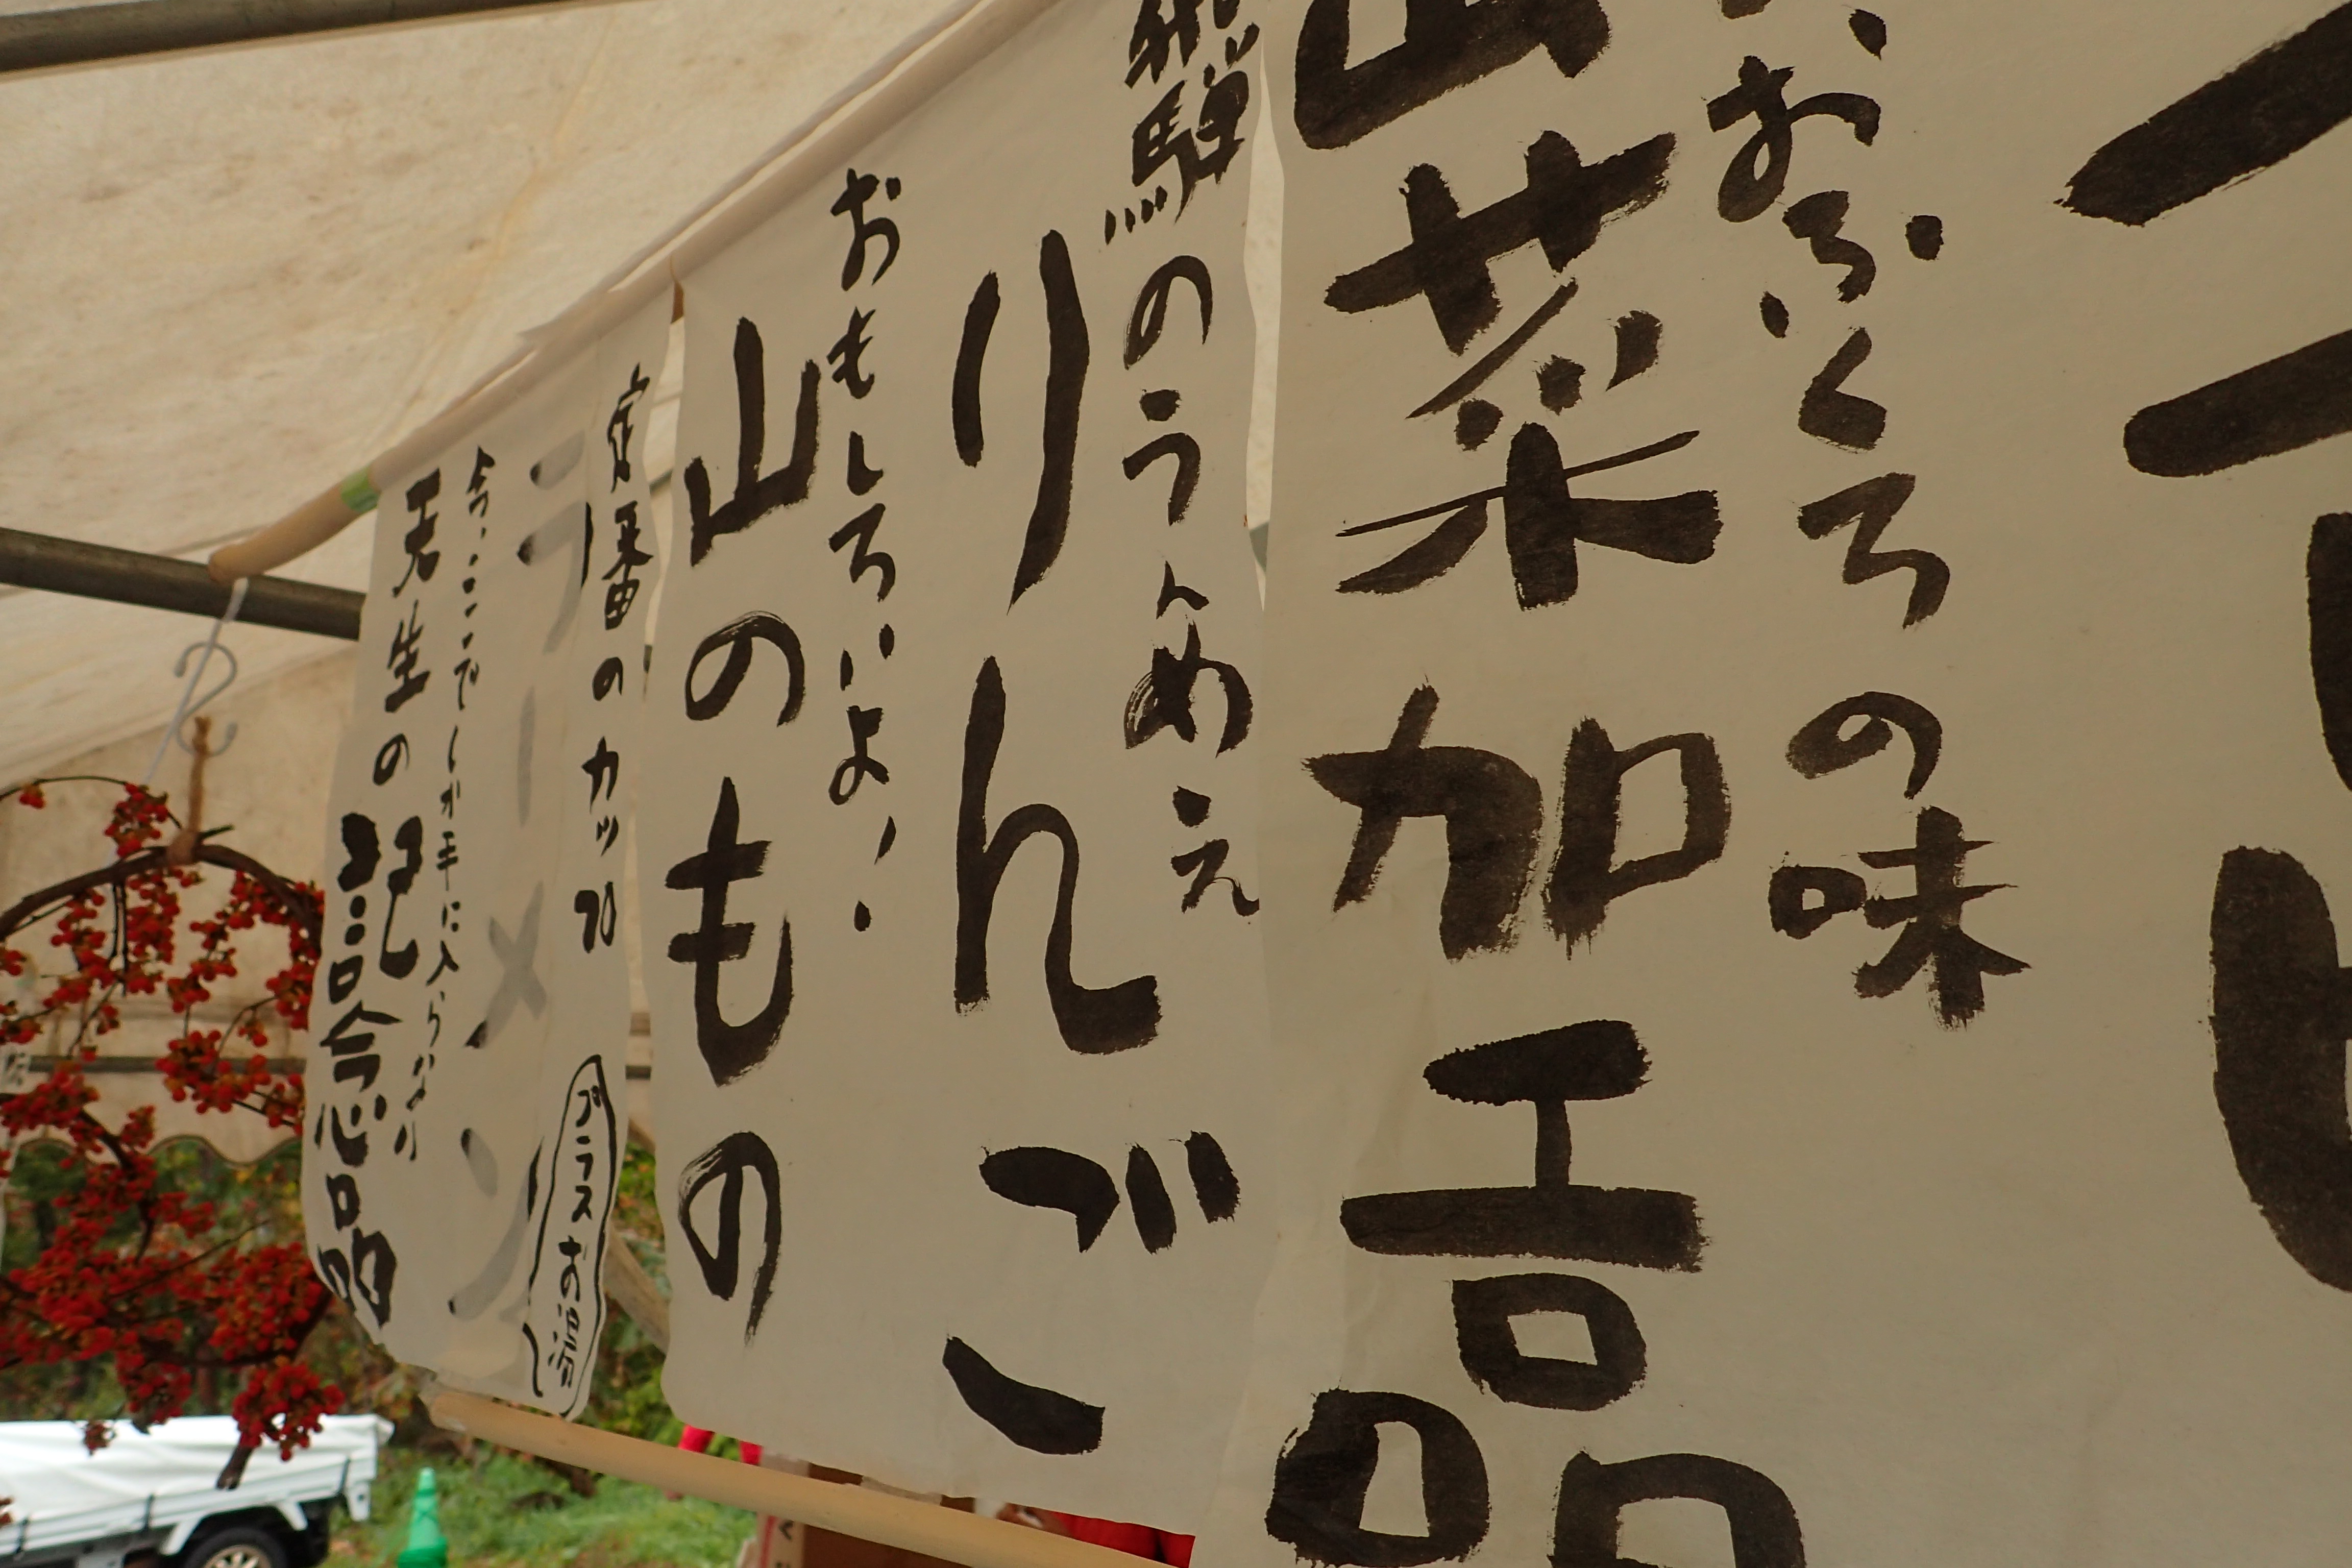 おふくろの味
山菜加工品
飛騨のうんめえ
りんご
おもしろいよ!!
山のもの
定番のカップ
ラーメン
プラスお湯
今、ここでしか手に入らない
天生の記念品